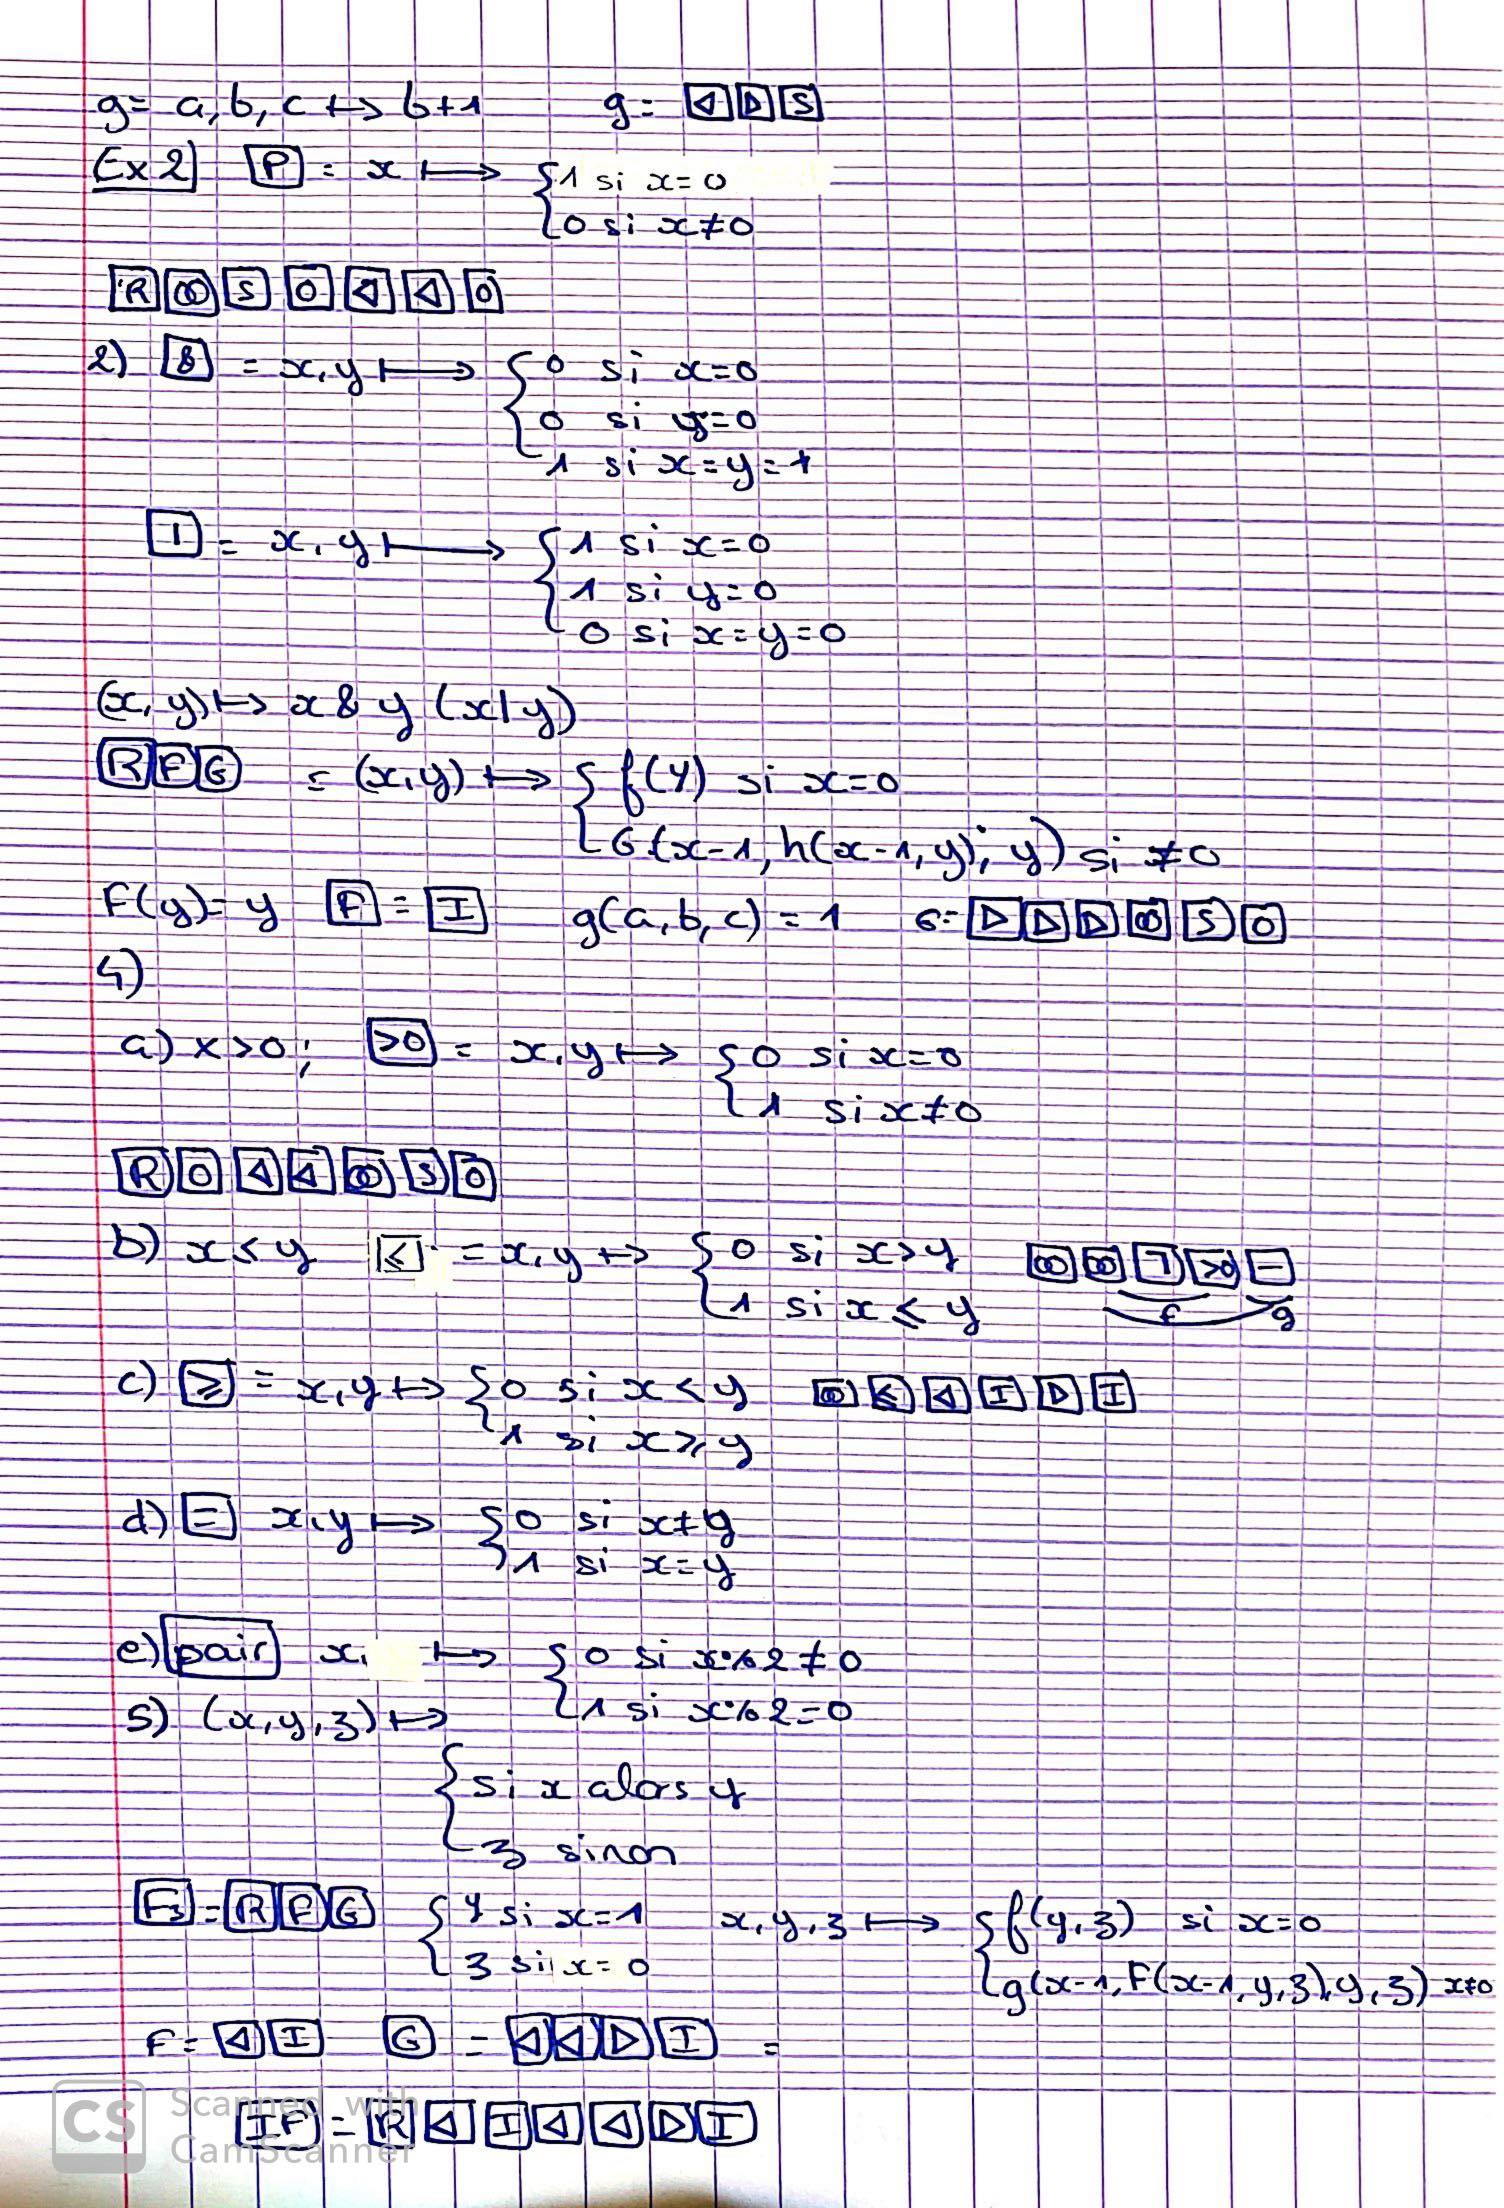 g= a, b, c ↦ b+1 g= ◁ ▷ S
Ex 2] P = x ⟼ { 1 si x=0
0 si x≠0
R ⓪ S O ◁ ◁ O
2) & = x, y ⟼ { 0 si x=0
0 si y=0
1 si x=y=1
| = x, y ⟼ { 1 si x=0
1 si y=0
0 si x=y=0
(x, y) ↦ x & y (x|y)
R F G = (x, y) ⟼ { f(y) si x=0
G(x-1, h(x-1, y); y) si ≠0
F(y)= y F = I g(a, b, c) = 1 G= ▷ ▷ ▷ ⓪ S O
4)
a) x>0 ; >0 = x, y ⟼ { 0 si x=0
1 si x≠0
R O ◁ ◁ ⓪ S O
b) x ≤ y ≤ = x, y ↦ { 0 si x>y ⓪ ⓪ ¬ >0 −
1 si x ≤ y f g
c) ≥ = x, y ↦ { 0 si x < y ⓪ ≤ ◁ I ▷ I
1 si x ≥ y
d) = x, y ⟼ { 0 si x≠y
1 si x=y
e) pair x, ⟼ { 0 si x%2≠0
1 si x%2=0
5) (x, y, z) ↦
{ si x alors y
z sinon
F3 = R F G { y si x=1 x, y, z ⟼ { f(y, z) si x=0
z si x=0 g(x-1, F(x-1, y, z), y, z) x≠0
F= ◁ I G = ◁ ◁ ▷ I =
IF = R ◁ I ◁ ◁ ▷ I
CS Scanned with
CamScanner